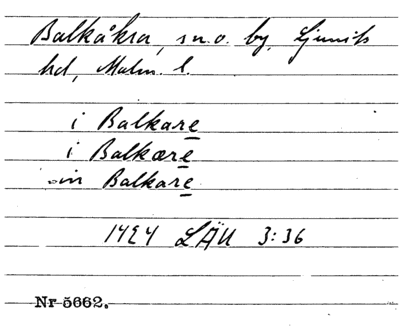 Balkåkra, sn.o. by, Ljunits
hd, Malm. l.
i Balkare
i Balkære
in Balkare
1424 LÄU 3:36
Nr 5662.